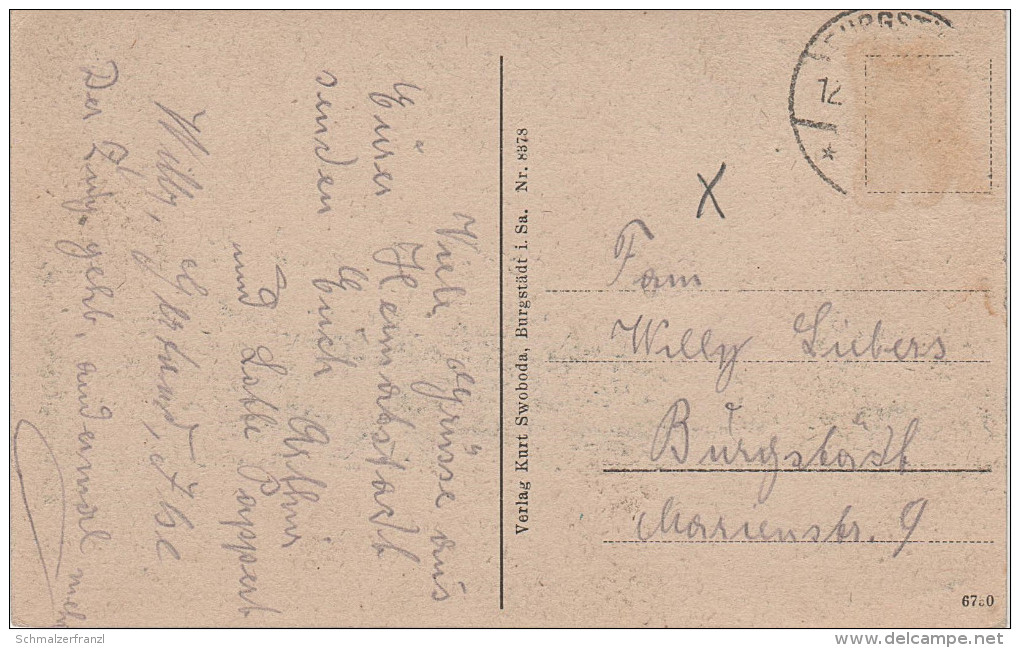 Viele Grüsse aus
Eurer Heimatstadt
senden Euch Arthur
und Lotte Pappert
Willy, Gertrud, Ilse
Der Zug geht, andermal mehr
Verlag Kurt Swoboda, Burgstädt i. Sa. Nr. 8378
BURGST
12
Fam
Willy Liebers
Burgstädt
Marienstr. 9
Schmalzerfranzl
delcampe.net